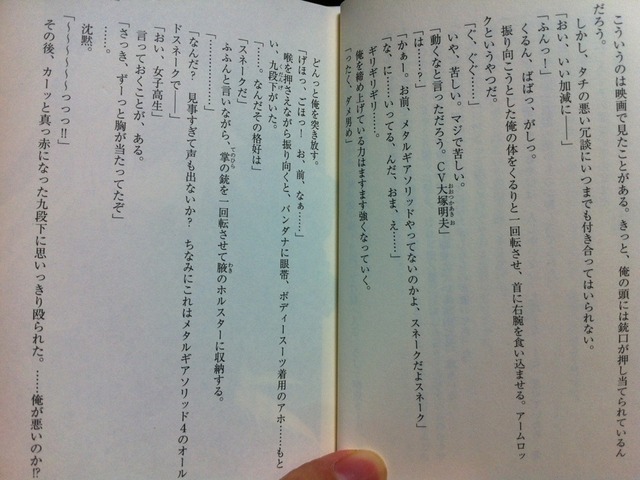 こういうのは映画で見たことがある。きっと、俺の頭には銃口が押し当てられているん
だろう。
しかし、タチの悪い冗談にいつまでも付き合ってはいられない。
「おい、いい加減に――」
「ふんっ！」
くるん、ばばっ、がしっ。
振り向こうとした俺の体をくるりと一回転させ、首に右腕を食い込ませる。アームロッ
クというやつだ。
「ぐ、ぐぐ……」
いや、苦しい。マジで苦しい。
「動くなと言っただろう。ＣＶ大塚明夫」
「は……？」
「かぁー。お前、メタルギアソリッドやってないのかよ、スネークだよスネーク」
「な、に……いってる、んだ、おま、え……」
ギリギリギリ……。
俺を締め上げている力はますます強くなっていく。
「ったく、ダメ男め」
どんっと俺を突き放す。
「げほっ、ごほっ！　お、前、なぁ……」
喉を押さえながら振り向くと、バンダナに眼帯、ボディースーツ着用のアホ……もと
い、九段下がいた。
「……。なんだその格好は」
「スネークだ」
「…………」
ふふんと言いながら、掌の銃を一回転させて腋のホルスターに収納する。
「なんだ？　見事すぎて声も出ないか？　ちなみにこれはメタルギアソリッド４のオール
ドスネークで――」
「おい、女子高生」
言っておくことが、ある。
「さっき、ずーっと胸が当たってたぞ」
「……」
沈黙。
「～～～～～～っっっ!!」
その後、カーッと真っ赤になった九段下に思いっきり殴られた。……俺が悪いのか!?